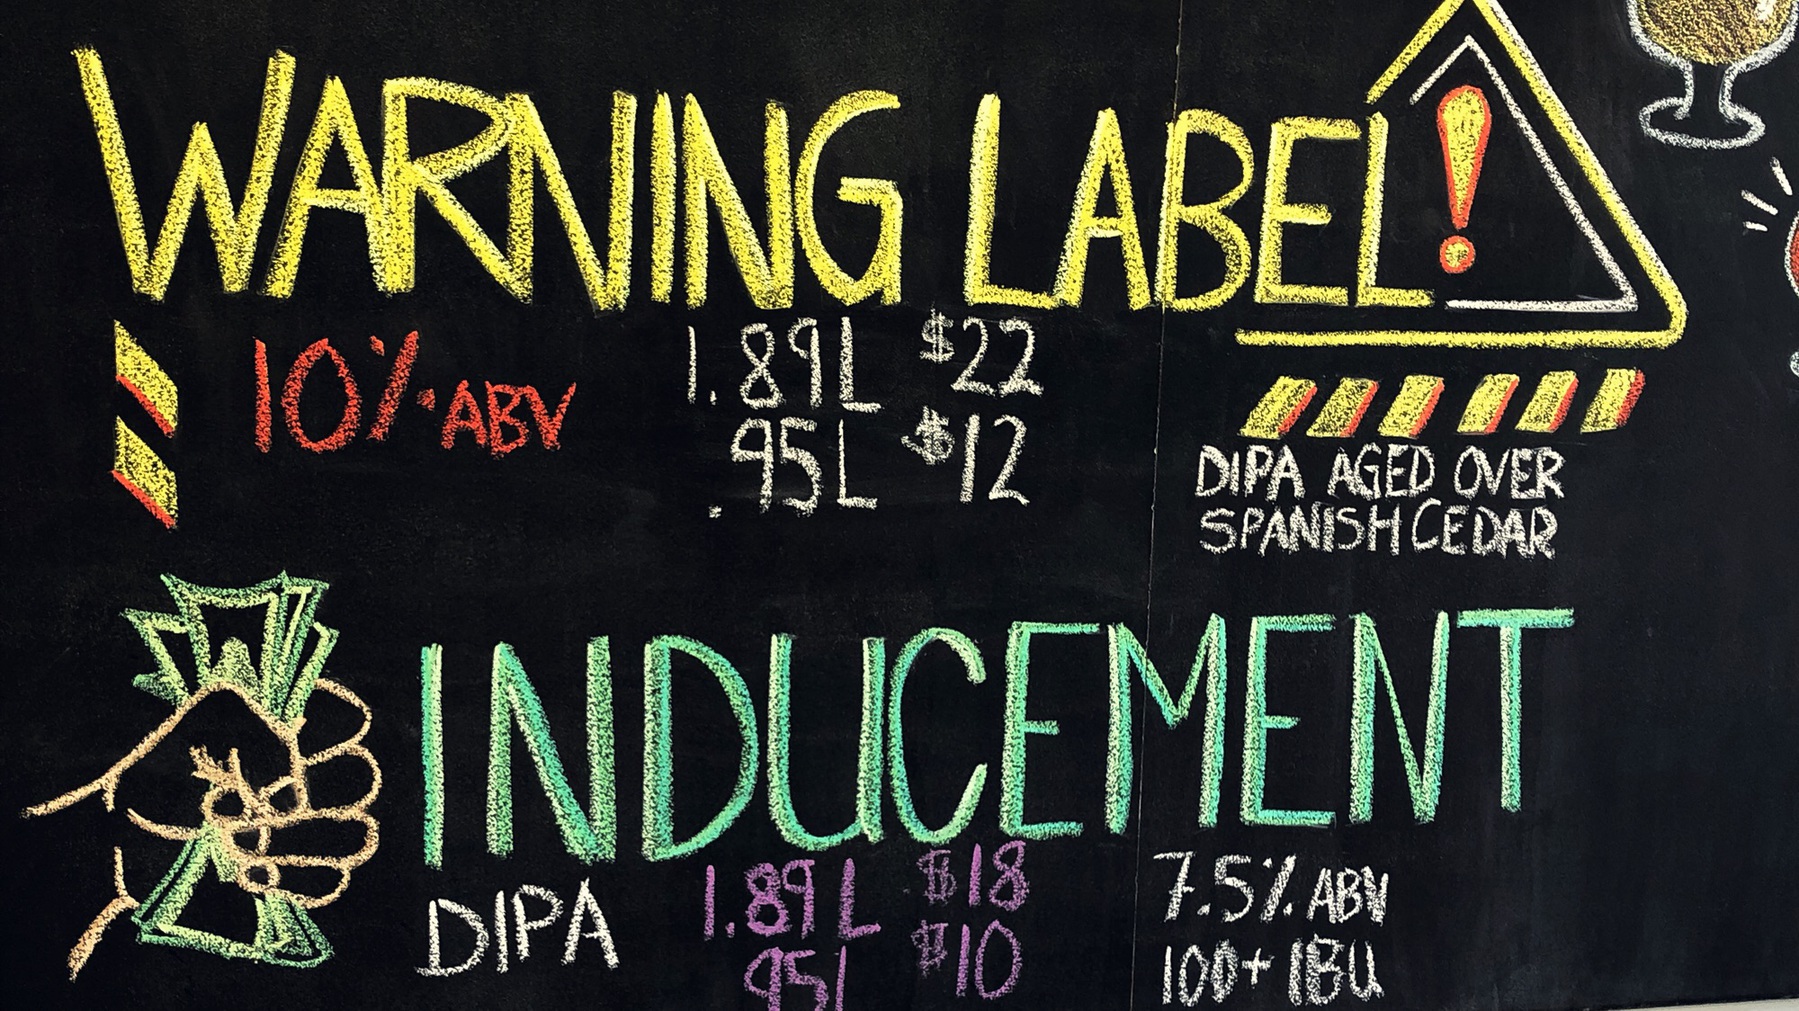 WARNING LABEL!
10% ABV
1.89L $22
.95L $12
DIPA AGED OVER
SPANISH CEDAR
INDUCEMENT
DIPA
1.89L $18
95L $10
7.5% ABV
100+ IBU